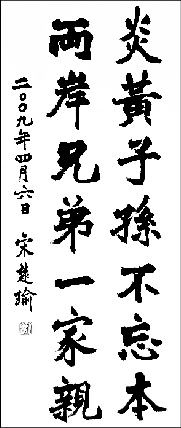 炎黃子孫不忘本
兩岸兄弟一家親
二〇〇九年四月六日 宋楚瑜